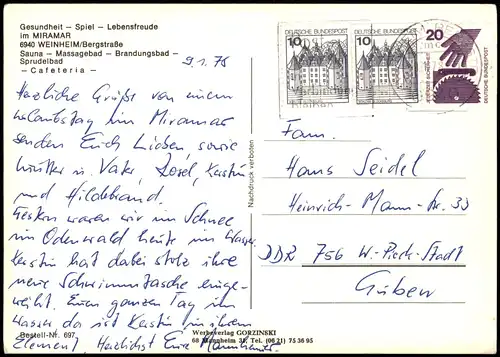 Gesundheit – Spiel – Lebensfreude
im MIRAMAR
6940 WEINHEIM/Bergstraße
Sauna – Massagebad – Brandungsbad –
Sprudelbad
– Cafeteria –
9.1.78
Herzliche Grüße von einem
Urlaubstag im Miramar
senden Euch Lieben sowie
Mutter u. Vater, Rosel, Kerstin
und Hildebrand.
Gestern waren wir im Schnee
im Odenwald heute im Wasser.
Kerstin hat dabei stolz ihre
neue Schwimmtasche einge-
weiht. Einen ganzen Tag im
Wasser da ist Kerstin in ihrem
Element. Herzlichst Eure
Bestell-Nr. 697
Nachdruck verboten
Werbeverlag GORZINSKI
68 Mannheim 31, Tel. (06 21) 75 36 95
10 DEUTSCHE BUNDESPOST
10 DEUTSCHE BUNDESPOST
20
DEUTSCHE BUNDESPOST
Fam.
Hans Seidel
Heinrich-Mann-Str. 33
DDR 756 W.-Pieck-Stadt
Guben